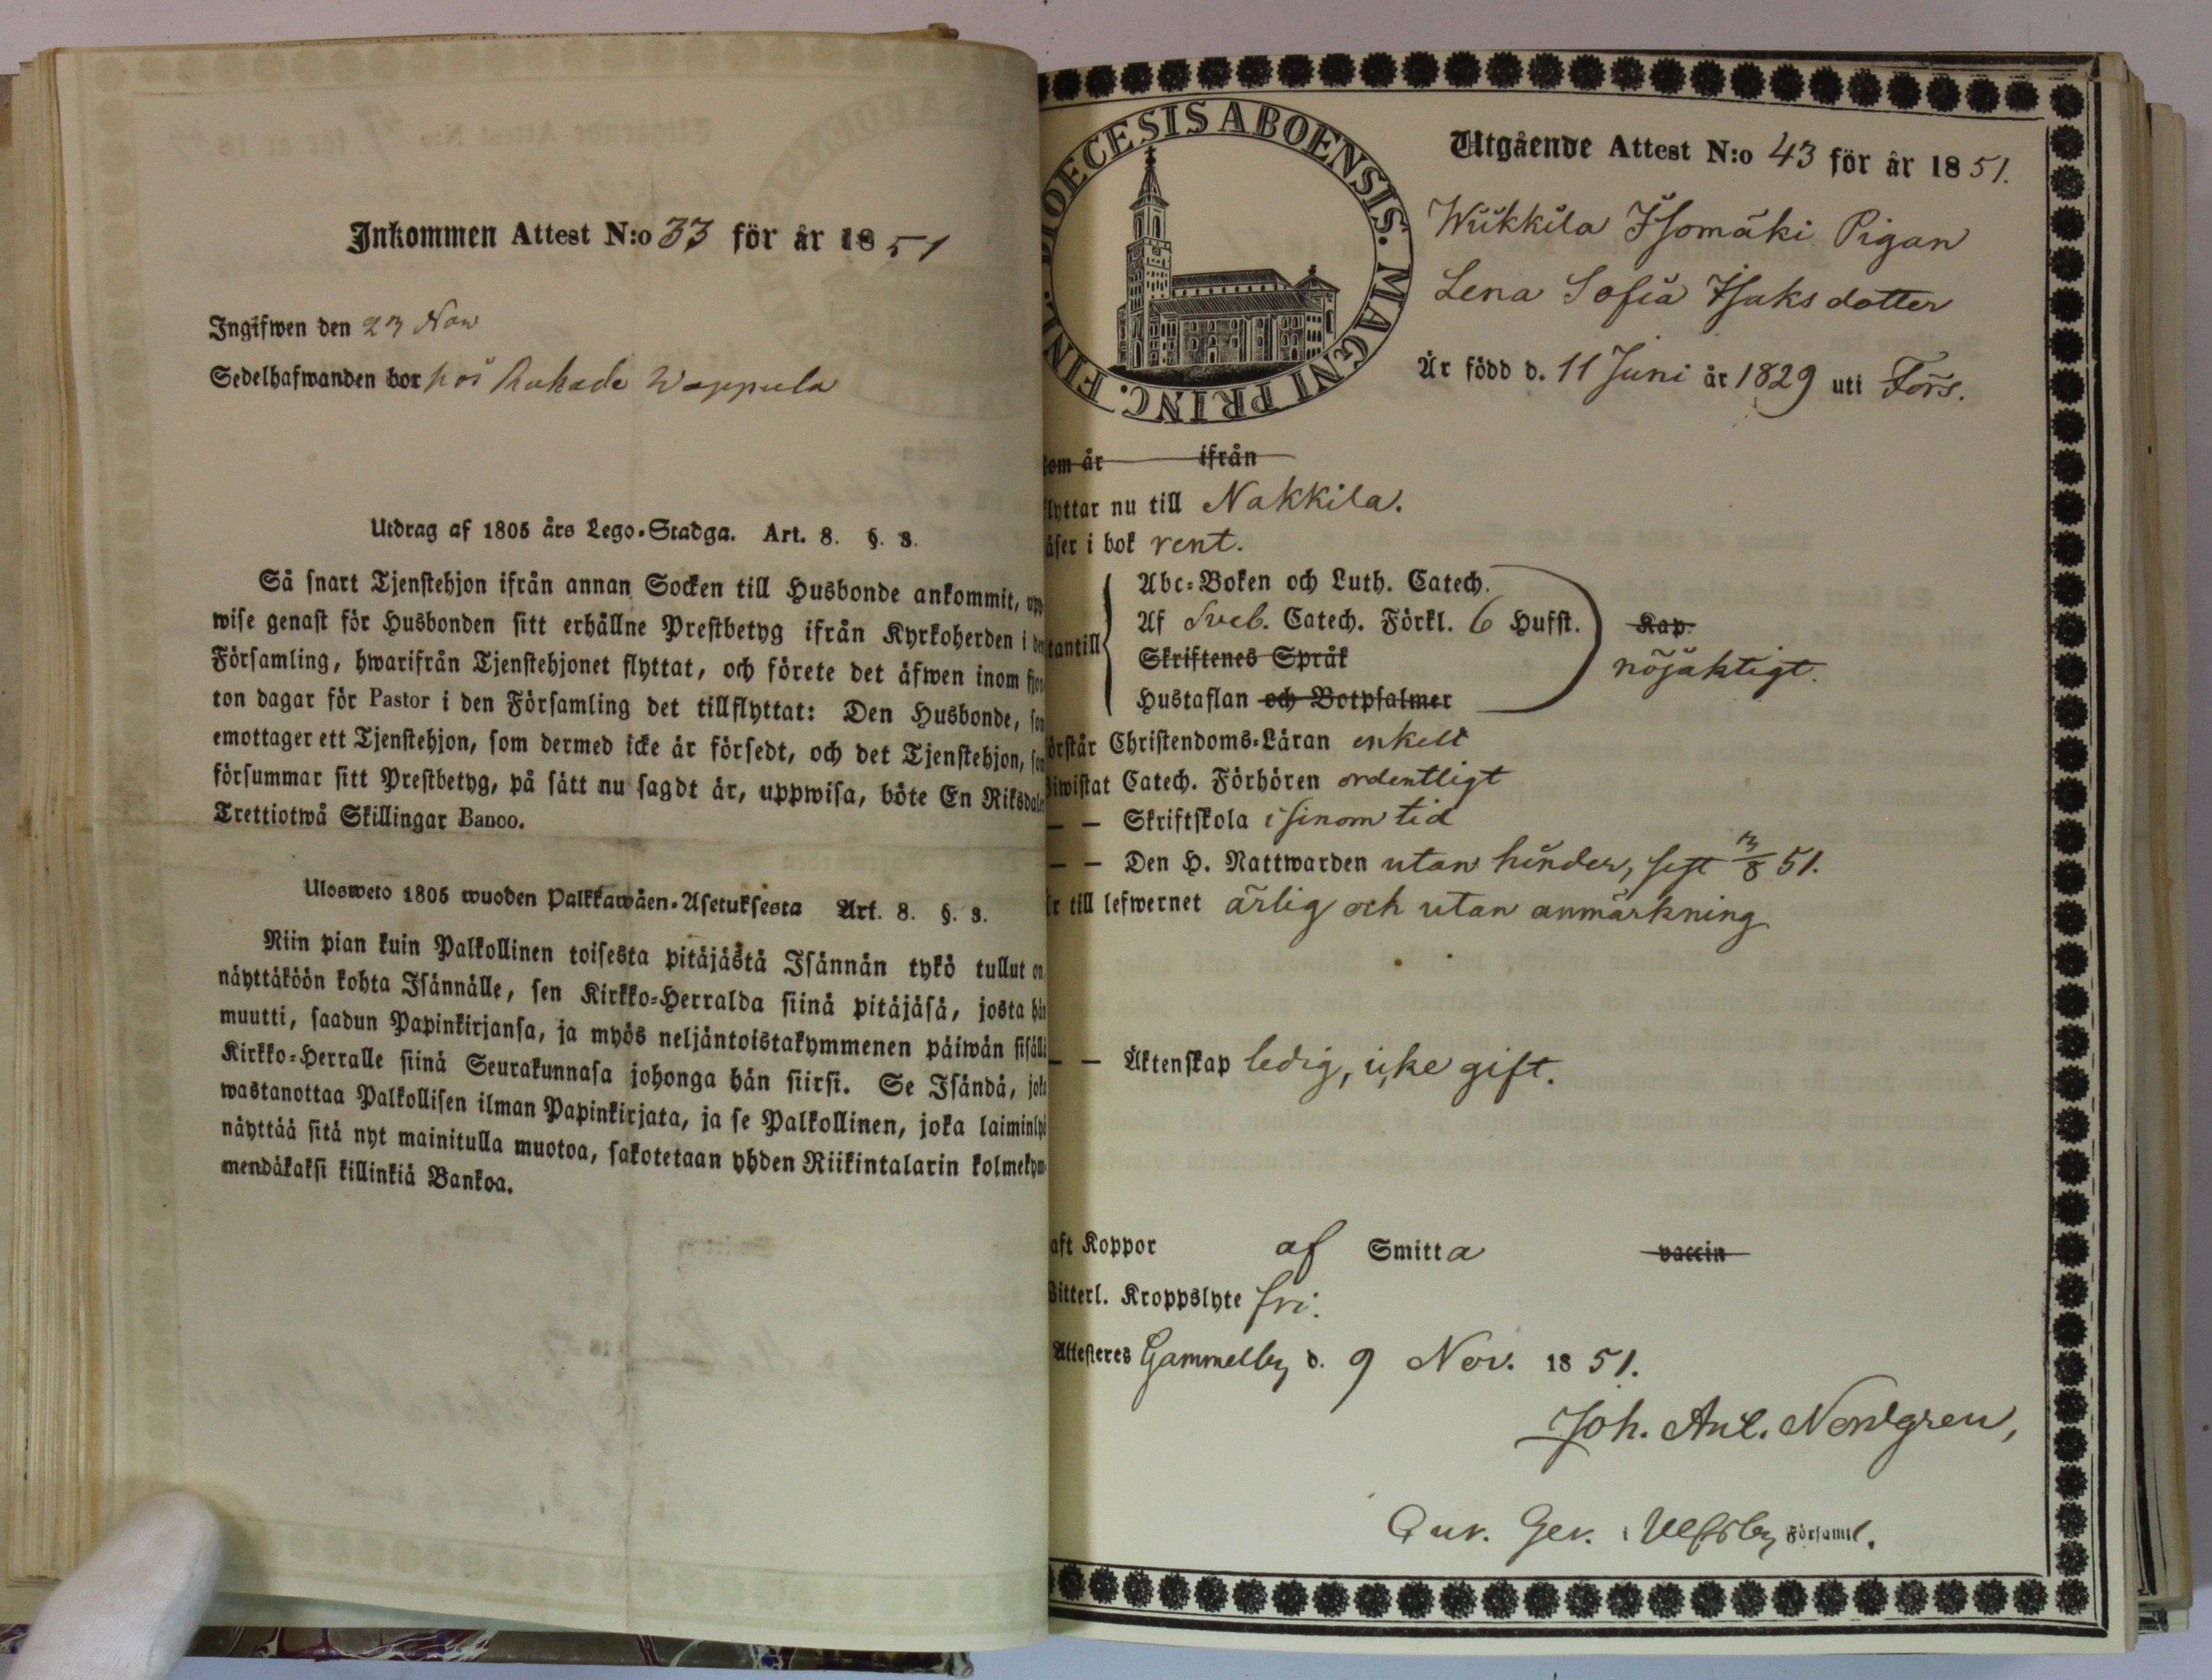 Inkommen Attest N:o 33 för år 1851
Ingifwen den 23 Nov
Sedelhafwanden bor hos
Utdrag af 1805 års Lego-Stadga. Art. 8. §. 3.
Så snart Tjenstehjon ifrån annan Socken till Husbonde ankommit, upp
wise genast för Husbonden sitt erhållne Prestbetyg ifrån Kyrkoherden i den
Församling, hwarifrån Tjenstehjonet flyttat, och förete det äfwen inom fjor
ton dagar för Pastor i den Församling det tillflyttat: Den Husbonde, som
emottager ett Tjenstehjon, som dermed icke är försedt, och det Tjenstehjon, som
försummar sitt Prestbetyg, på sätt nu sagdt är, uppwisa, böte En Riksdaler
Trettiotwå Skillingar Banco.
Ulosweto 1805 wuoden Palkkawäen-Asetuksesta Art. 8. §. 3.
Niin pian kuin Palkollinen toisesta pitäjästä Isännän tykö tullut on
näyttäköön kohta Isännälle, sen Kirkko-Herralda siinä pitäjäsä, josta hän
muutti, saadun Papinkirjansa, ja myös neljäntoistakymmenen päiwän sisällä
Kirkko-Herralle siinä Seurakunnasa johonga hän siirsi. Se Isändä, joka
wastanottaa Palkollisen ilman Papinkirjata, ja se Palkollinen, joka laiminlyö
näyttää sitä nyt mainitulla muotoa, sakotetaan yhden Riikintalarin kolmekym-
mendäkaksi killinkiä Bankoa.
DIOECESIS ABOENSIS. MAGNI PRINC. FINL.
Utgående Attest N:o 43 för år 1851.
Wiikkila Isomäki Pigan
Lena Sofia Isaksdotter
Är född d. 11 Juni år 1829 uti Förs.
om år ifrån
lyttar nu till Nakkila.
äser i bok rent.
tantill
Abc-Boken och Luth. Catech.
Af Sveb. Catech. Förkl. 6 Hufst.
Skriftenes Språk
Hustaflan och Botpsalmer
Kap.
nöjaktigt.
örstår Christendoms-Läran enkelt
iwistat Catech. Förhören ordentligt
— — Skriftskola i sinom tid
— — Den H. Nattwarden utan hinder, sist 3/8 51.
r till lefwernet ärlig och utan anmärkning
— — Äktenskap ledig, icke gift.
aft Koppor af Smitta vaccin
itterl. Kroppslyte fri.
Attesteres Gammelby d. 9 Nov. 1851.
Joh. Ant. Nordgren,
Cur. Ger. i Ulfsby Församl.